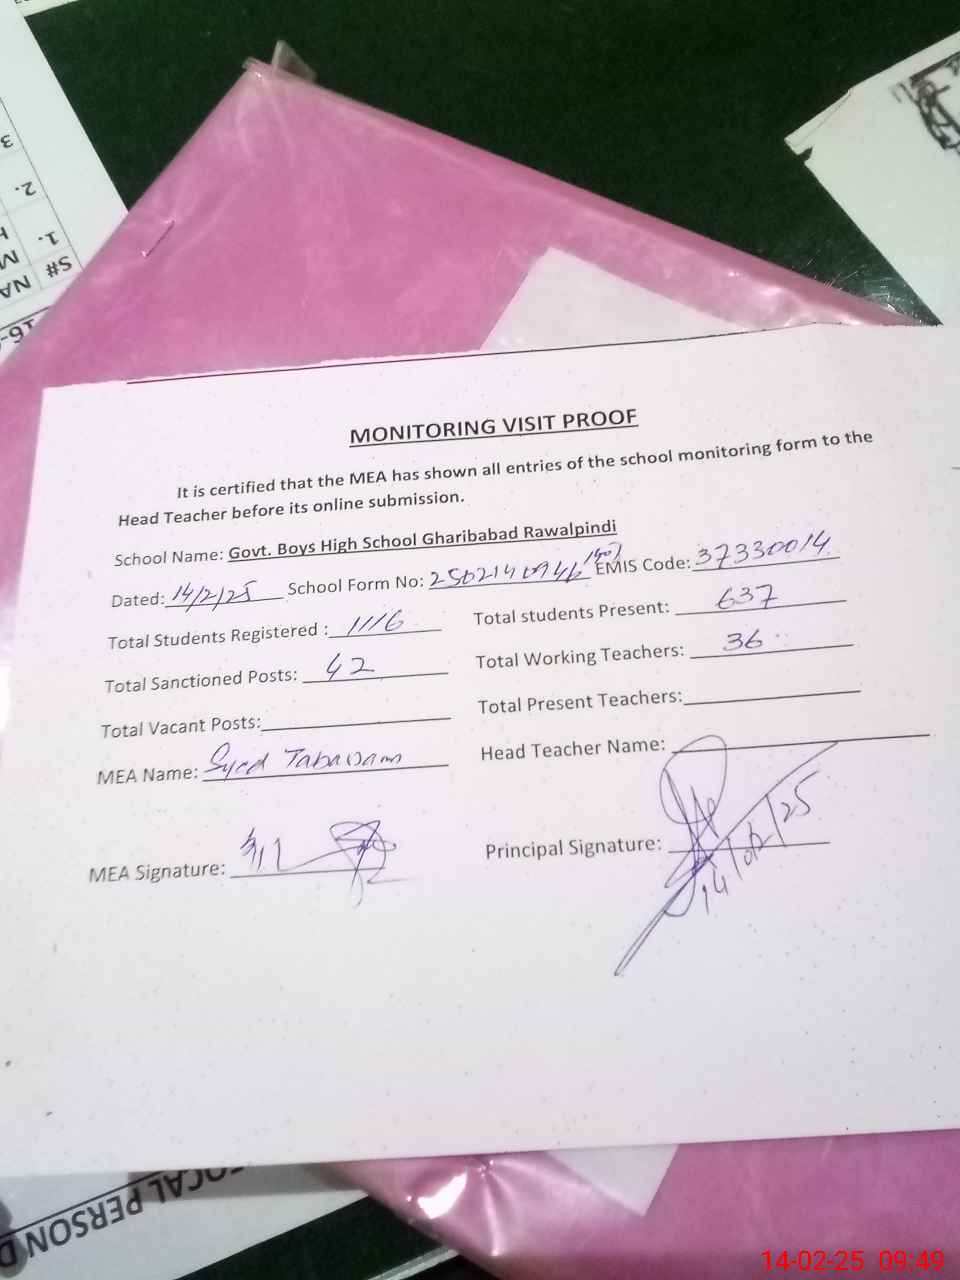 MONITORING VISIT PROOF
It is certified that the MEA has shown all entries of the school monitoring form to the
Head Teacher before its online submission.
School Name: Govt. Boys High School Gharibabad Rawalpindi
Dated: 14/2/25 School Form No: 250214 0946 EMIS Code: 37330014
Total Students Registered : 1116 Total students Present: 637
Total Sanctioned Posts: 42 Total Working Teachers: 36
Total Vacant Posts: Total Present Teachers:
MEA Name: Syed Head Teacher Name:
MEA Signature: Principal Signature:
14/02/25
S#
NA
1.
M
2.
3
16-
FOCAL PERSON D
14-02-25 09:49